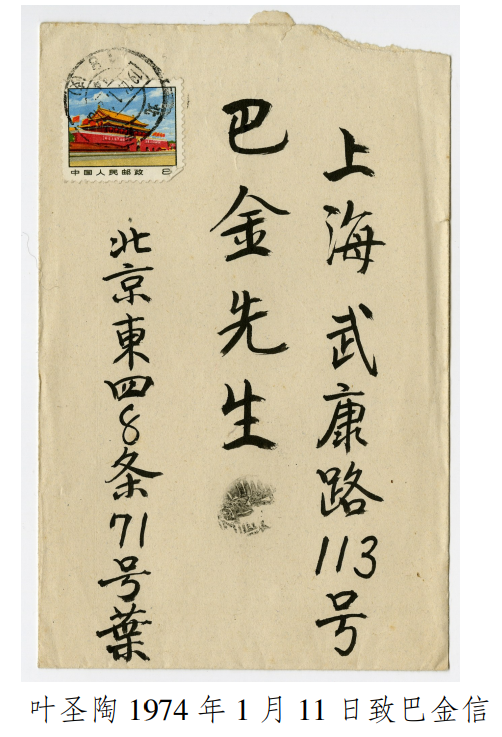 上海 武康路113号
巴金先生
北京東四8条71号葉
中国人民邮政 8
叶圣陶 1974 年 1 月 11 日致巴金信